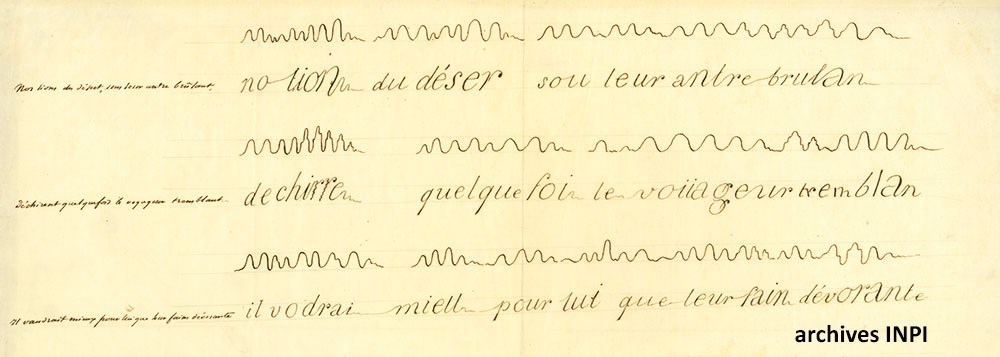 Nos lions du désert, sous leur antre brûlant, no lion du déser sou leur antre brulan
Déchirant quelquefois le voyageur tremblant de chirren quelque foi le voïiageur tremblan
Il vaudrait mieux pour lui que leur faim dévorante il vodrai mieu pour lui que leur fain dévorante
archives INPI